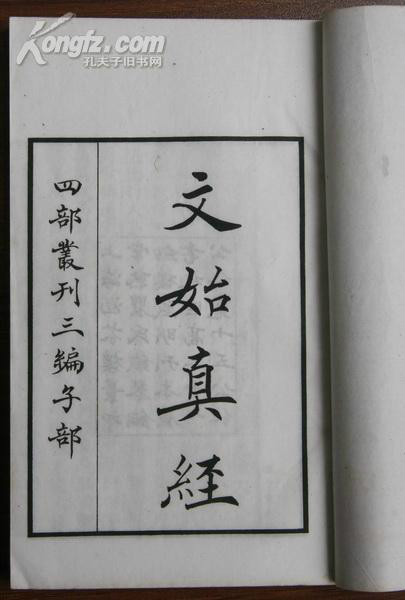 Kongfz.com
孔夫子旧书网
文始真経
四部叢刊三編子部